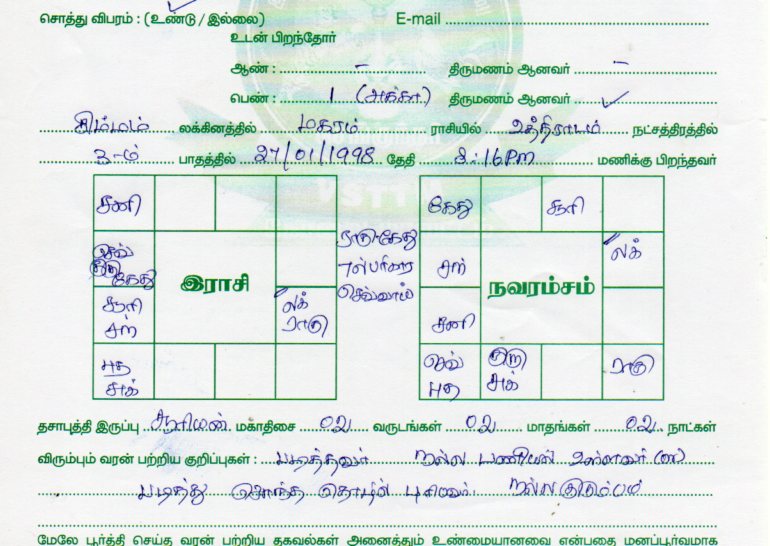 சொத்து விபரம் : (உண்டு / இல்லை) E-mail
உடன் பிறந்தோர்
ஆண் : – திருமணம் ஆனவர் –
பெண் : 1 (அக்கா) திருமணம் ஆனவர் ✓
சிம்மம் லக்கினத்தில் மகரம் ராசியில் உத்திராடம் நட்சத்திரத்தில்
3-ம் பாதத்தில் 27/01/1998 தேதி 8:16Pm மணிக்கு பிறந்தவர்
சனி கேது சூரி
செவ் குரு கேது ராகு-கேது செவ்வாய் சந் லக்
இராசி நவாம்சம்
சூரி சந் லக் ராகு சனி
புத சுக் செவ் புத குரு சுக் ராகு
தசாபுத்தி இருப்பு சூரியன் மகாதிசை 02 வருடங்கள் 02 மாதங்கள் 02 நாட்கள்
விரும்பும் வரன் பற்றிய குறிப்புகள் : படித்தவர் நல்ல பணியில் உள்ளவர் (or)
படித்து சொந்த தொழில் புரிபவர். நல்ல குடும்பம்
மேலே பூர்த்தி செய்த வரன் பற்றிய தகவல்கள் அனைத்தும் உண்மையானவை என்பதை மனப்பூர்வமாக